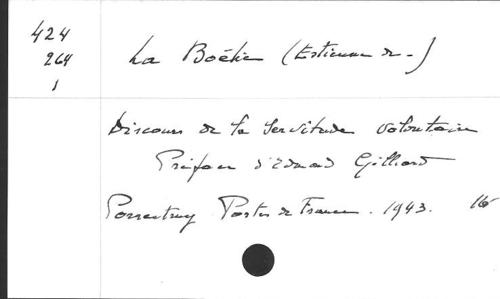 424
264
1
La Boétie (Estienne de -)
Discours de la Servitude volontaire
Préface d'Edmond Gilliard
Porrentruy Portes de France. 1943. 16°